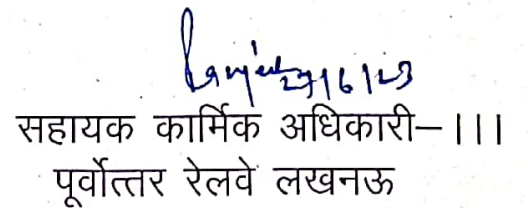 29/6/23
सहायक कार्मिक अधिकारी–।।।
पूर्वोत्तर रेलवे लखनऊ